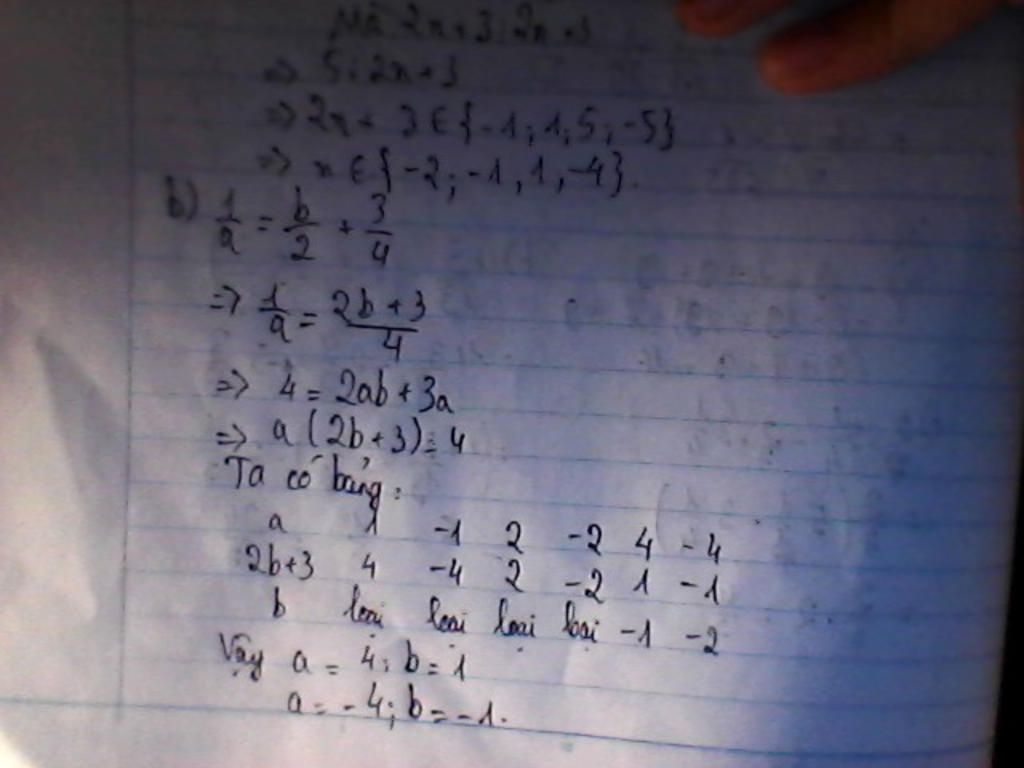 Mà 2n+3⋮2n+3
=> 5⋮2n+3
=> 2n+3∈{-1;1;5;-5}
=> n∈{-2;-1,1,-4}.
b) 1/a = b/2 + 3/4
=> 1/a = (2b+3)/4
=> 4 = 2ab+3a
=> a(2b+3)=4
Ta có bảng:
a 1 -1 2 -2 4 -4
2b+3 4 -4 2 -2 1 -1
b loại loại loại loại -1 -2
Vậy a = 4; b = 1
a = -4; b = -1.